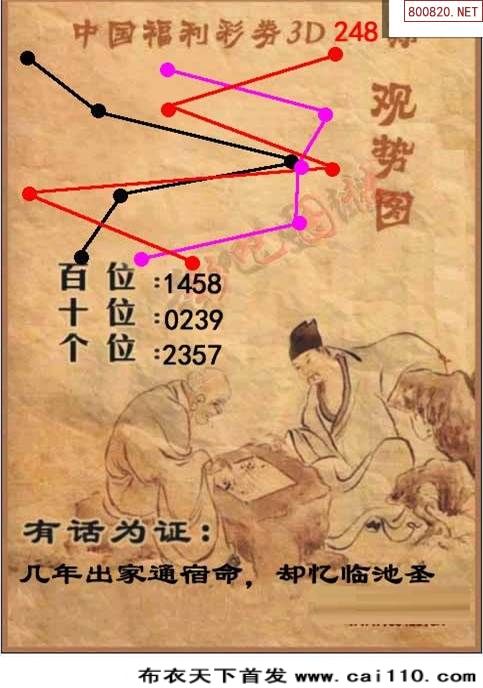 800820.NET
中国福利彩券3D 248
观势图
百 位 :1458
十 位 :0239
个 位 :2357
有话为证：
几年出家通宿命，却忆临池圣
布衣天下首发 www.cai110.com